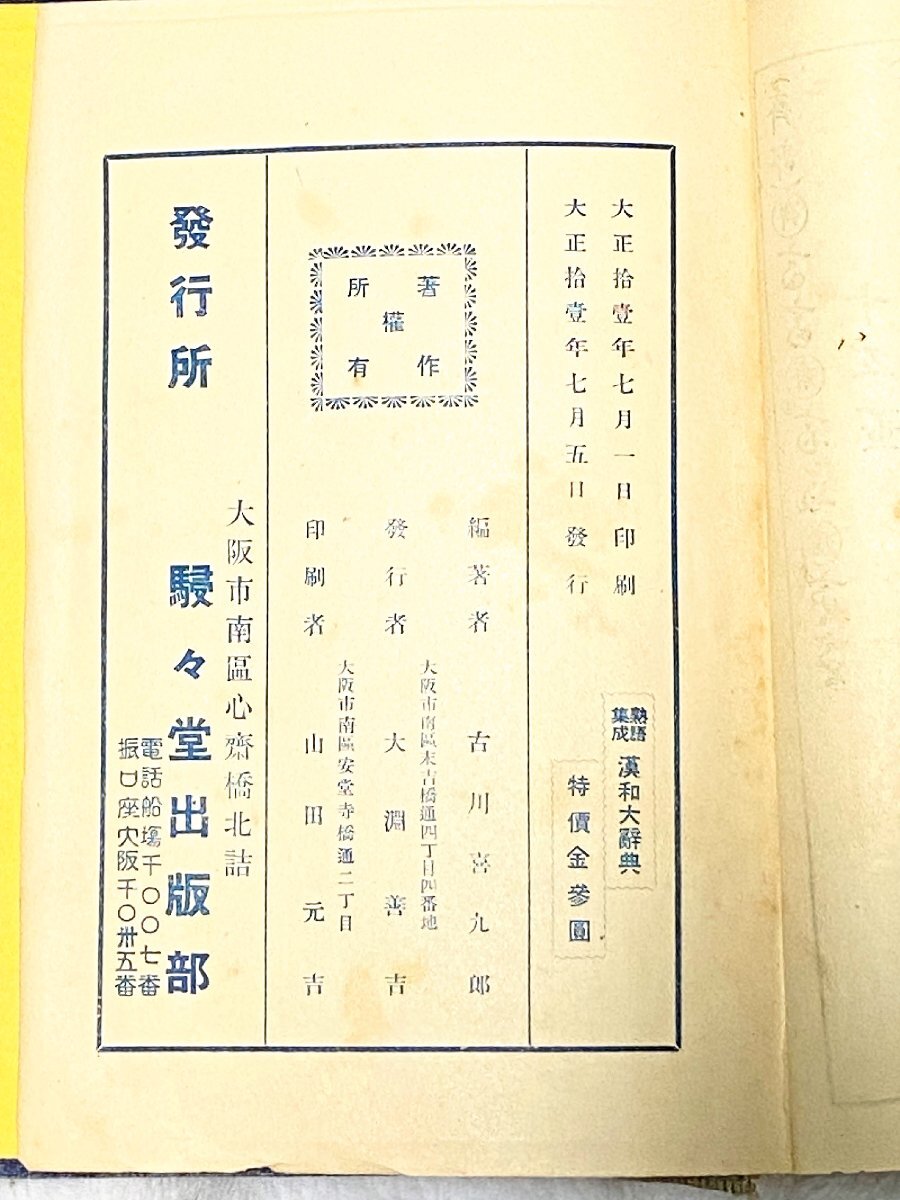 大正拾壹年七月一日印刷
大正拾壹年七月五日發行
熟語集成 漢和大辭典
特價金參圓
著作權所有
編著者 古川喜九郎
大阪市南區末吉橋通四丁目四番地
發行者 大淵善吉
大阪市南區安堂寺橋通二丁目
印刷者 山田元吉
大阪市南區心齋橋北詰
發行所 駸々堂出版部
電話船塲千〇〇七番
振口座大阪千〇卅五番